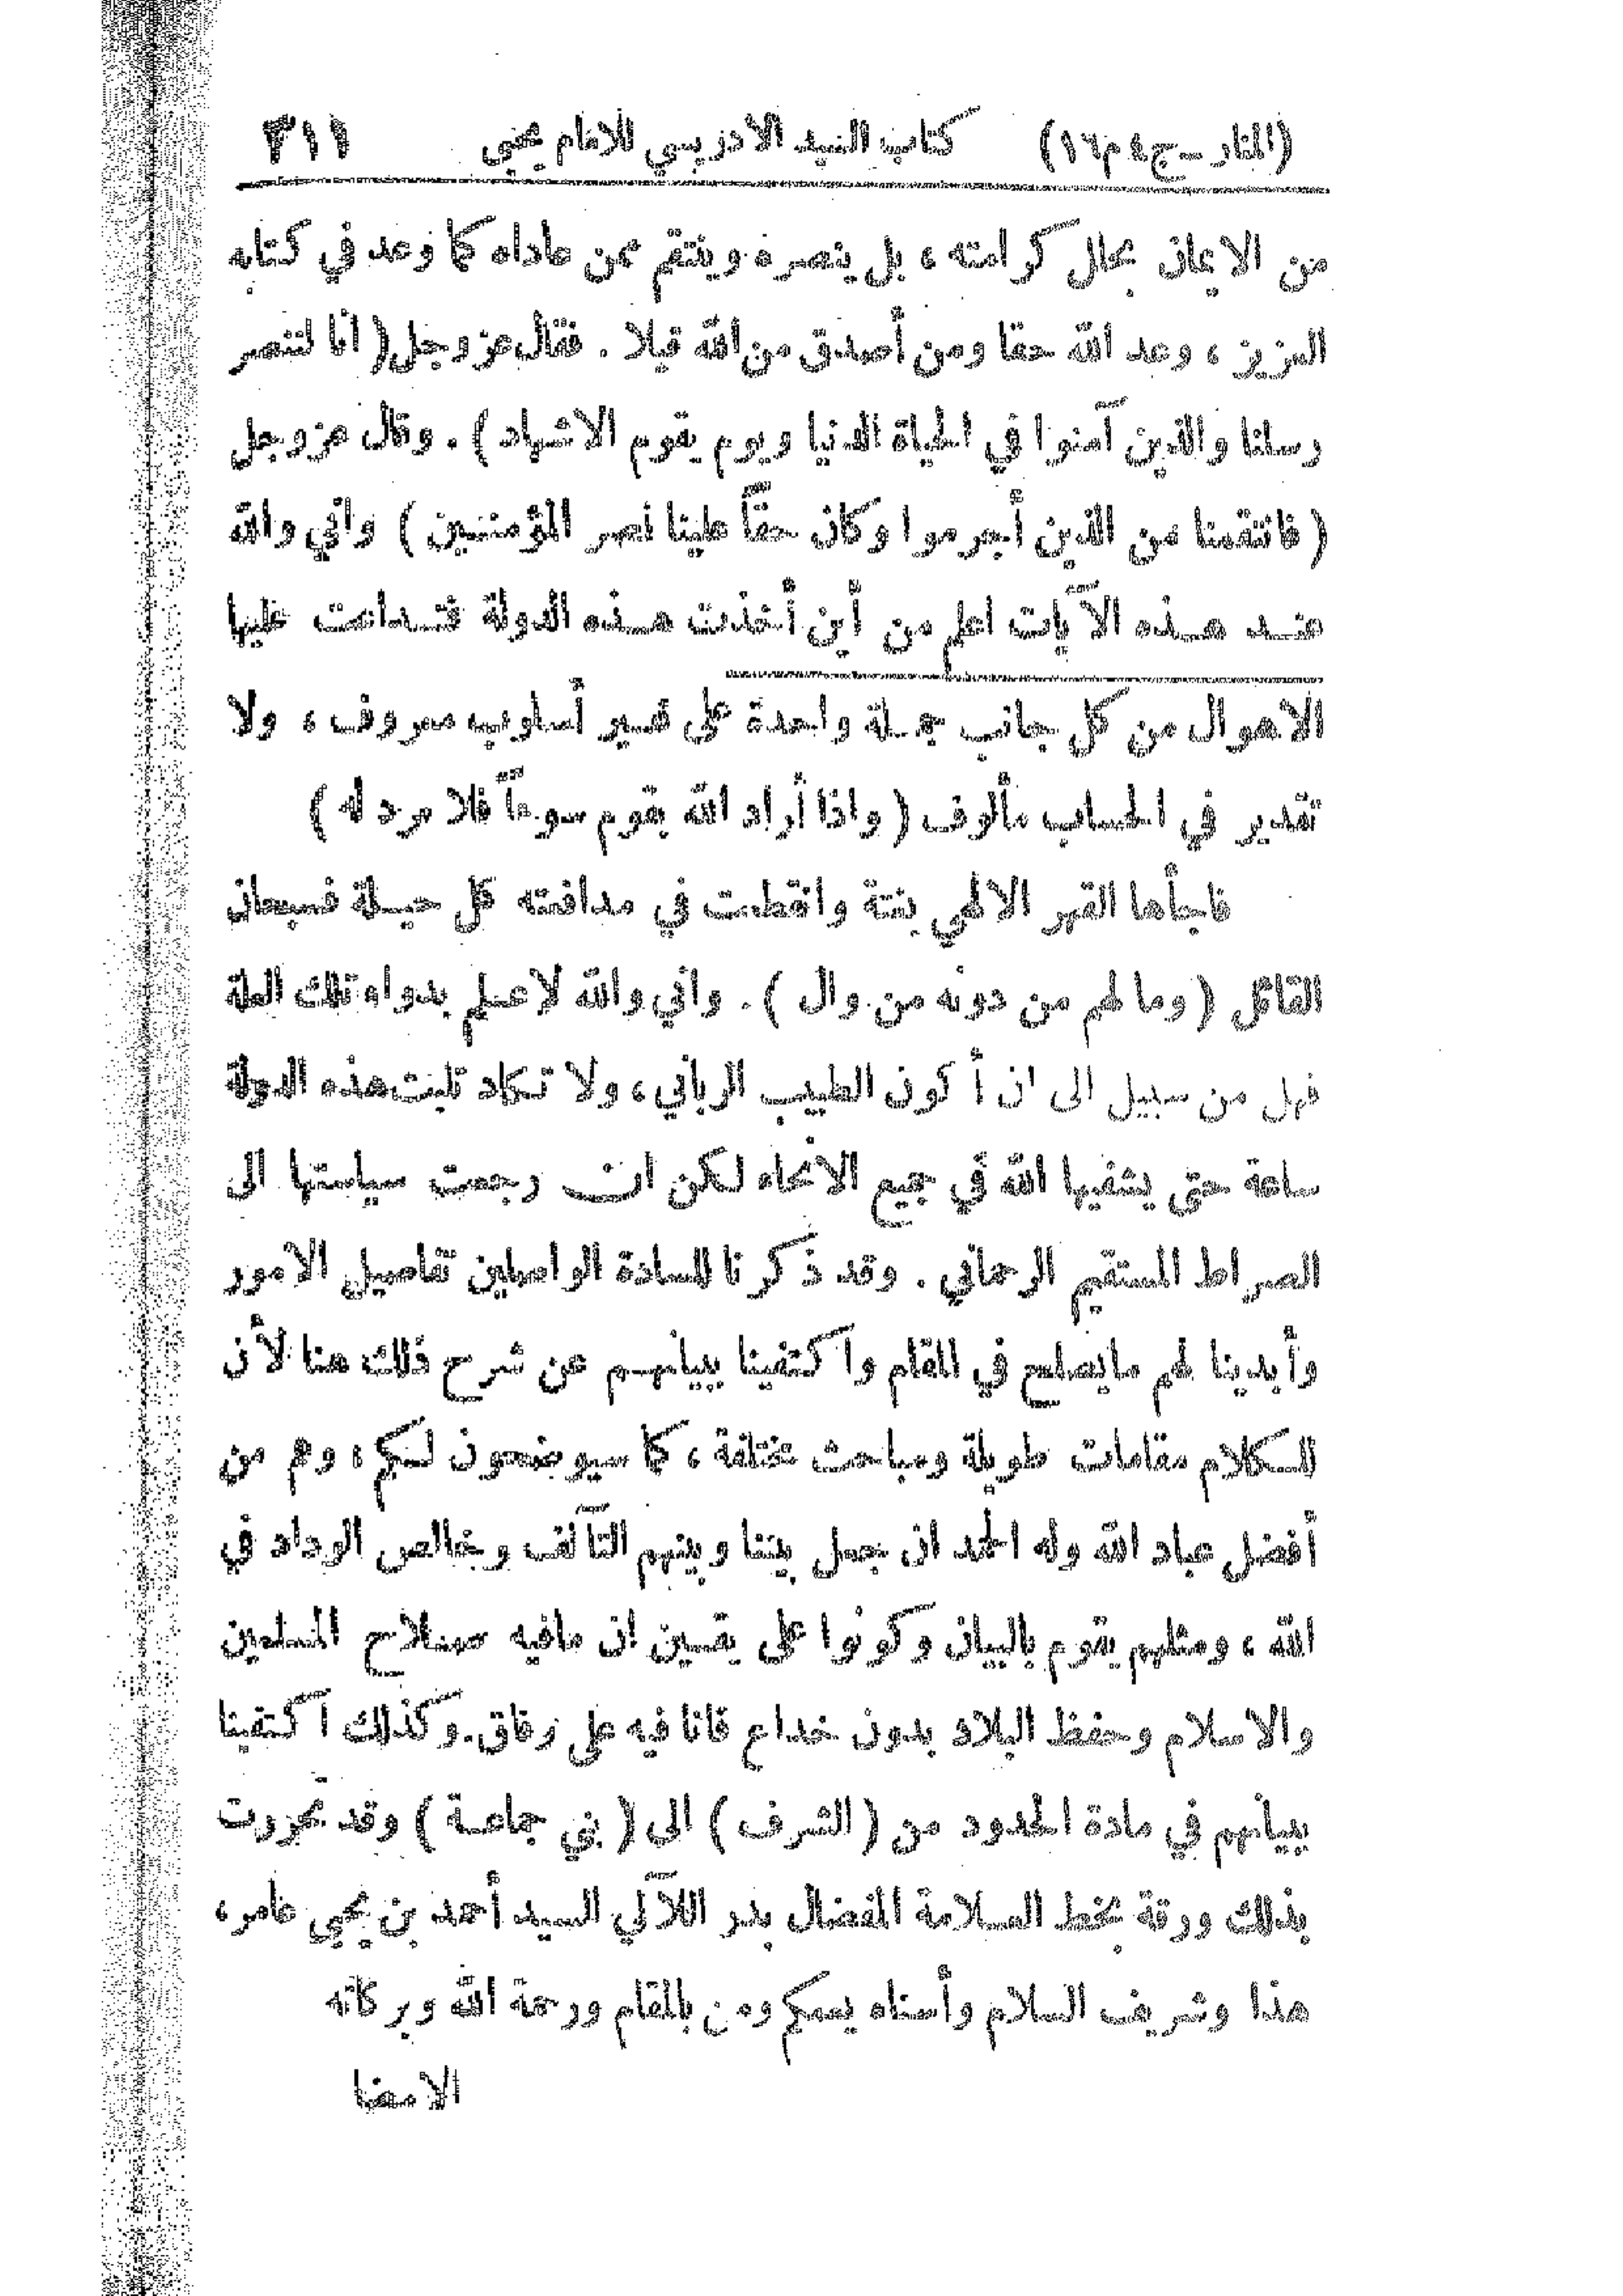 (المنار ـ ج ٤ م ١٦) كتاب السيد الادريسي للامام يحيى ٣١١
من الايمان بحال كرامته ، بل ينصره وينتقم ممن عاداه كما وعد في كتابه
العزيز ، وعد الله حقا ومن أصدق من الله قيلا . فقال عز وجل ( انا لننصر
رسلنا والذين آمنوا في الحياة الدنيا ويوم يقوم الاشهاد ) . وقال عز وجل
( فانتقمنا من الذين أجرموا وكان حقاً علينا نصر المؤمنين ) واني والله
عند هذه الآيات اعلم من أين أخذت هذه الدولة فتداعت عليها
الاهوال من كل جانب جملة واحدة على غير أسلوب معروف ، ولا
تقدير في الحساب مألوف ( واذا أراد الله بقوم سوءاً فلا مرد له )
فاجأها القهر الالهي بغتة وانقطعت في مدافعته كل حيلة فسبحان
القائل ( وما لهم من دونه من وال ) . واني والله لاعلم بدواء تلك العلة
فهل من سبيل الى ان أكون الطبيب الرباني ، ولا تكاد تلبث هذه الدولة
ساعة حتى يشفيها الله في جميع الانحاء لكن ان رجعت سياستها الى
الصراط المستقيم الرحماني . وقد ذكرنا للسادة الواصلين تفاصيل الامور
وأبدينا لهم مايصلح في المقام واكتفينا ببيانهم عن شرح ذلك هنا لأن
للكلام مقامات طويلة ومباحث مختلفة ، كما سيوضحون لكم ، وهم من
أفضل عباد الله وله الحمد ان جعل بيننا وبينهم التآلف وخالص الوداد في
الله ، ومثلهم يقوم بالبيان وكونوا على يقين ان مافيه صلاح المسلمين
والاسلام وحفظ البلاد بدون خداع فانا فيه على وفاق. وكذلك اكتفينا
ببيانهم في مادة الحدود من ( الشرف ) الى ( بني جماعة ) وقد تحررت
بذلك ورقة بخط العلامة المفضال بدر اللآلي السيد أحمد بن يحيى عامر ،
هذا وشريف السلام وأسناه يعمكم ومن بالمقام ورحمة الله وبركاته
الامضا